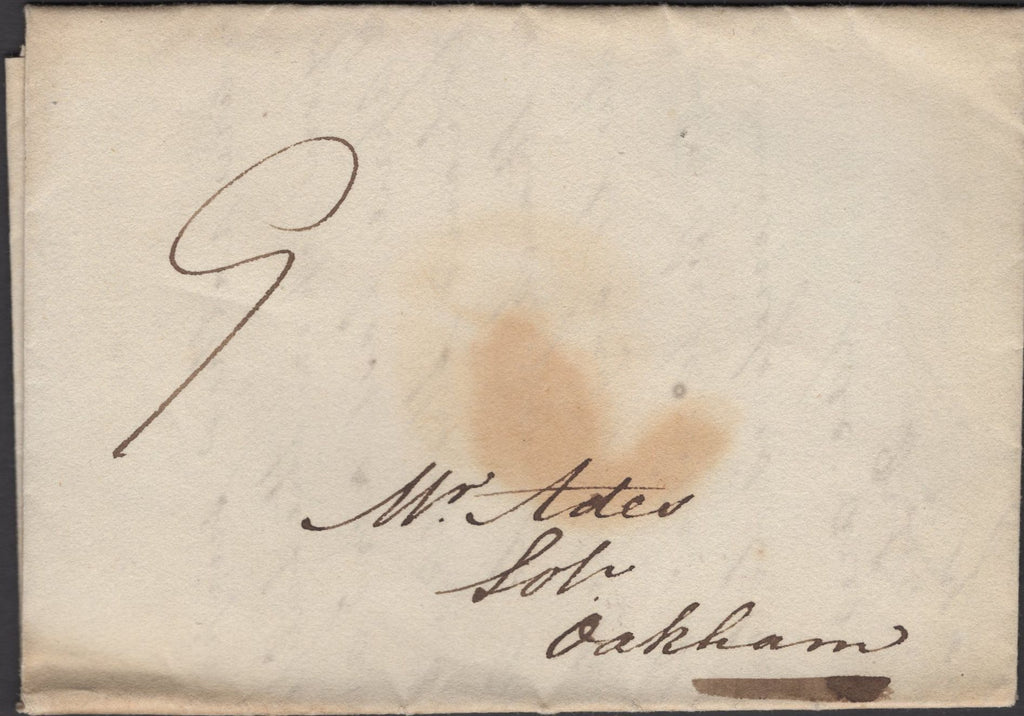 9
Mr. Ades
Solr.
Oakham